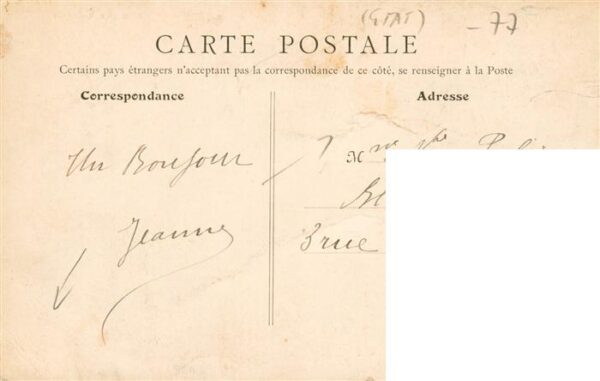 (STAT) -77
CARTE POSTALE
Certains pays étrangers n'acceptant pas la correspondance de ce côté, se renseigner à la Poste
Correspondance
Adresse
Un Bonjour
Jeanne
Mme
3 rue